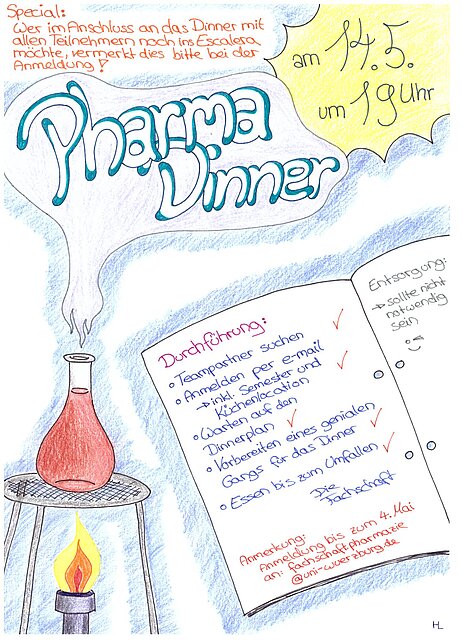 Special:
Wer im Anschluss an das Dinner mit
allen Teilnehmern noch ins Escalera
möchte, vermerkt dies bitte bei der
Anmeldung!
am 14.5.
um 19 Uhr
Pharma
Dinner
Durchführung:
• Teampartner suchen
• Anmelden per e-mail
→ inkl. Semester und
Küchenlocation
• Warten auf den
Dinnerplan
• Vorbereiten eines genialen
Gangs für das Dinner
• Essen bis zum Umfallen
Die
Fachschaft
Anmerkung:
Anmeldung bis zum 4. Mai
an: fachschaftpharmazie
@uni-wuerzburg.de
Entsorgung:
→ sollte nicht
notwendig
sein
HL